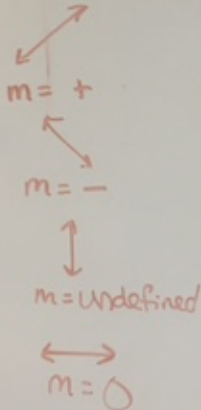 m = +
m = -
m = undefined
m = 0